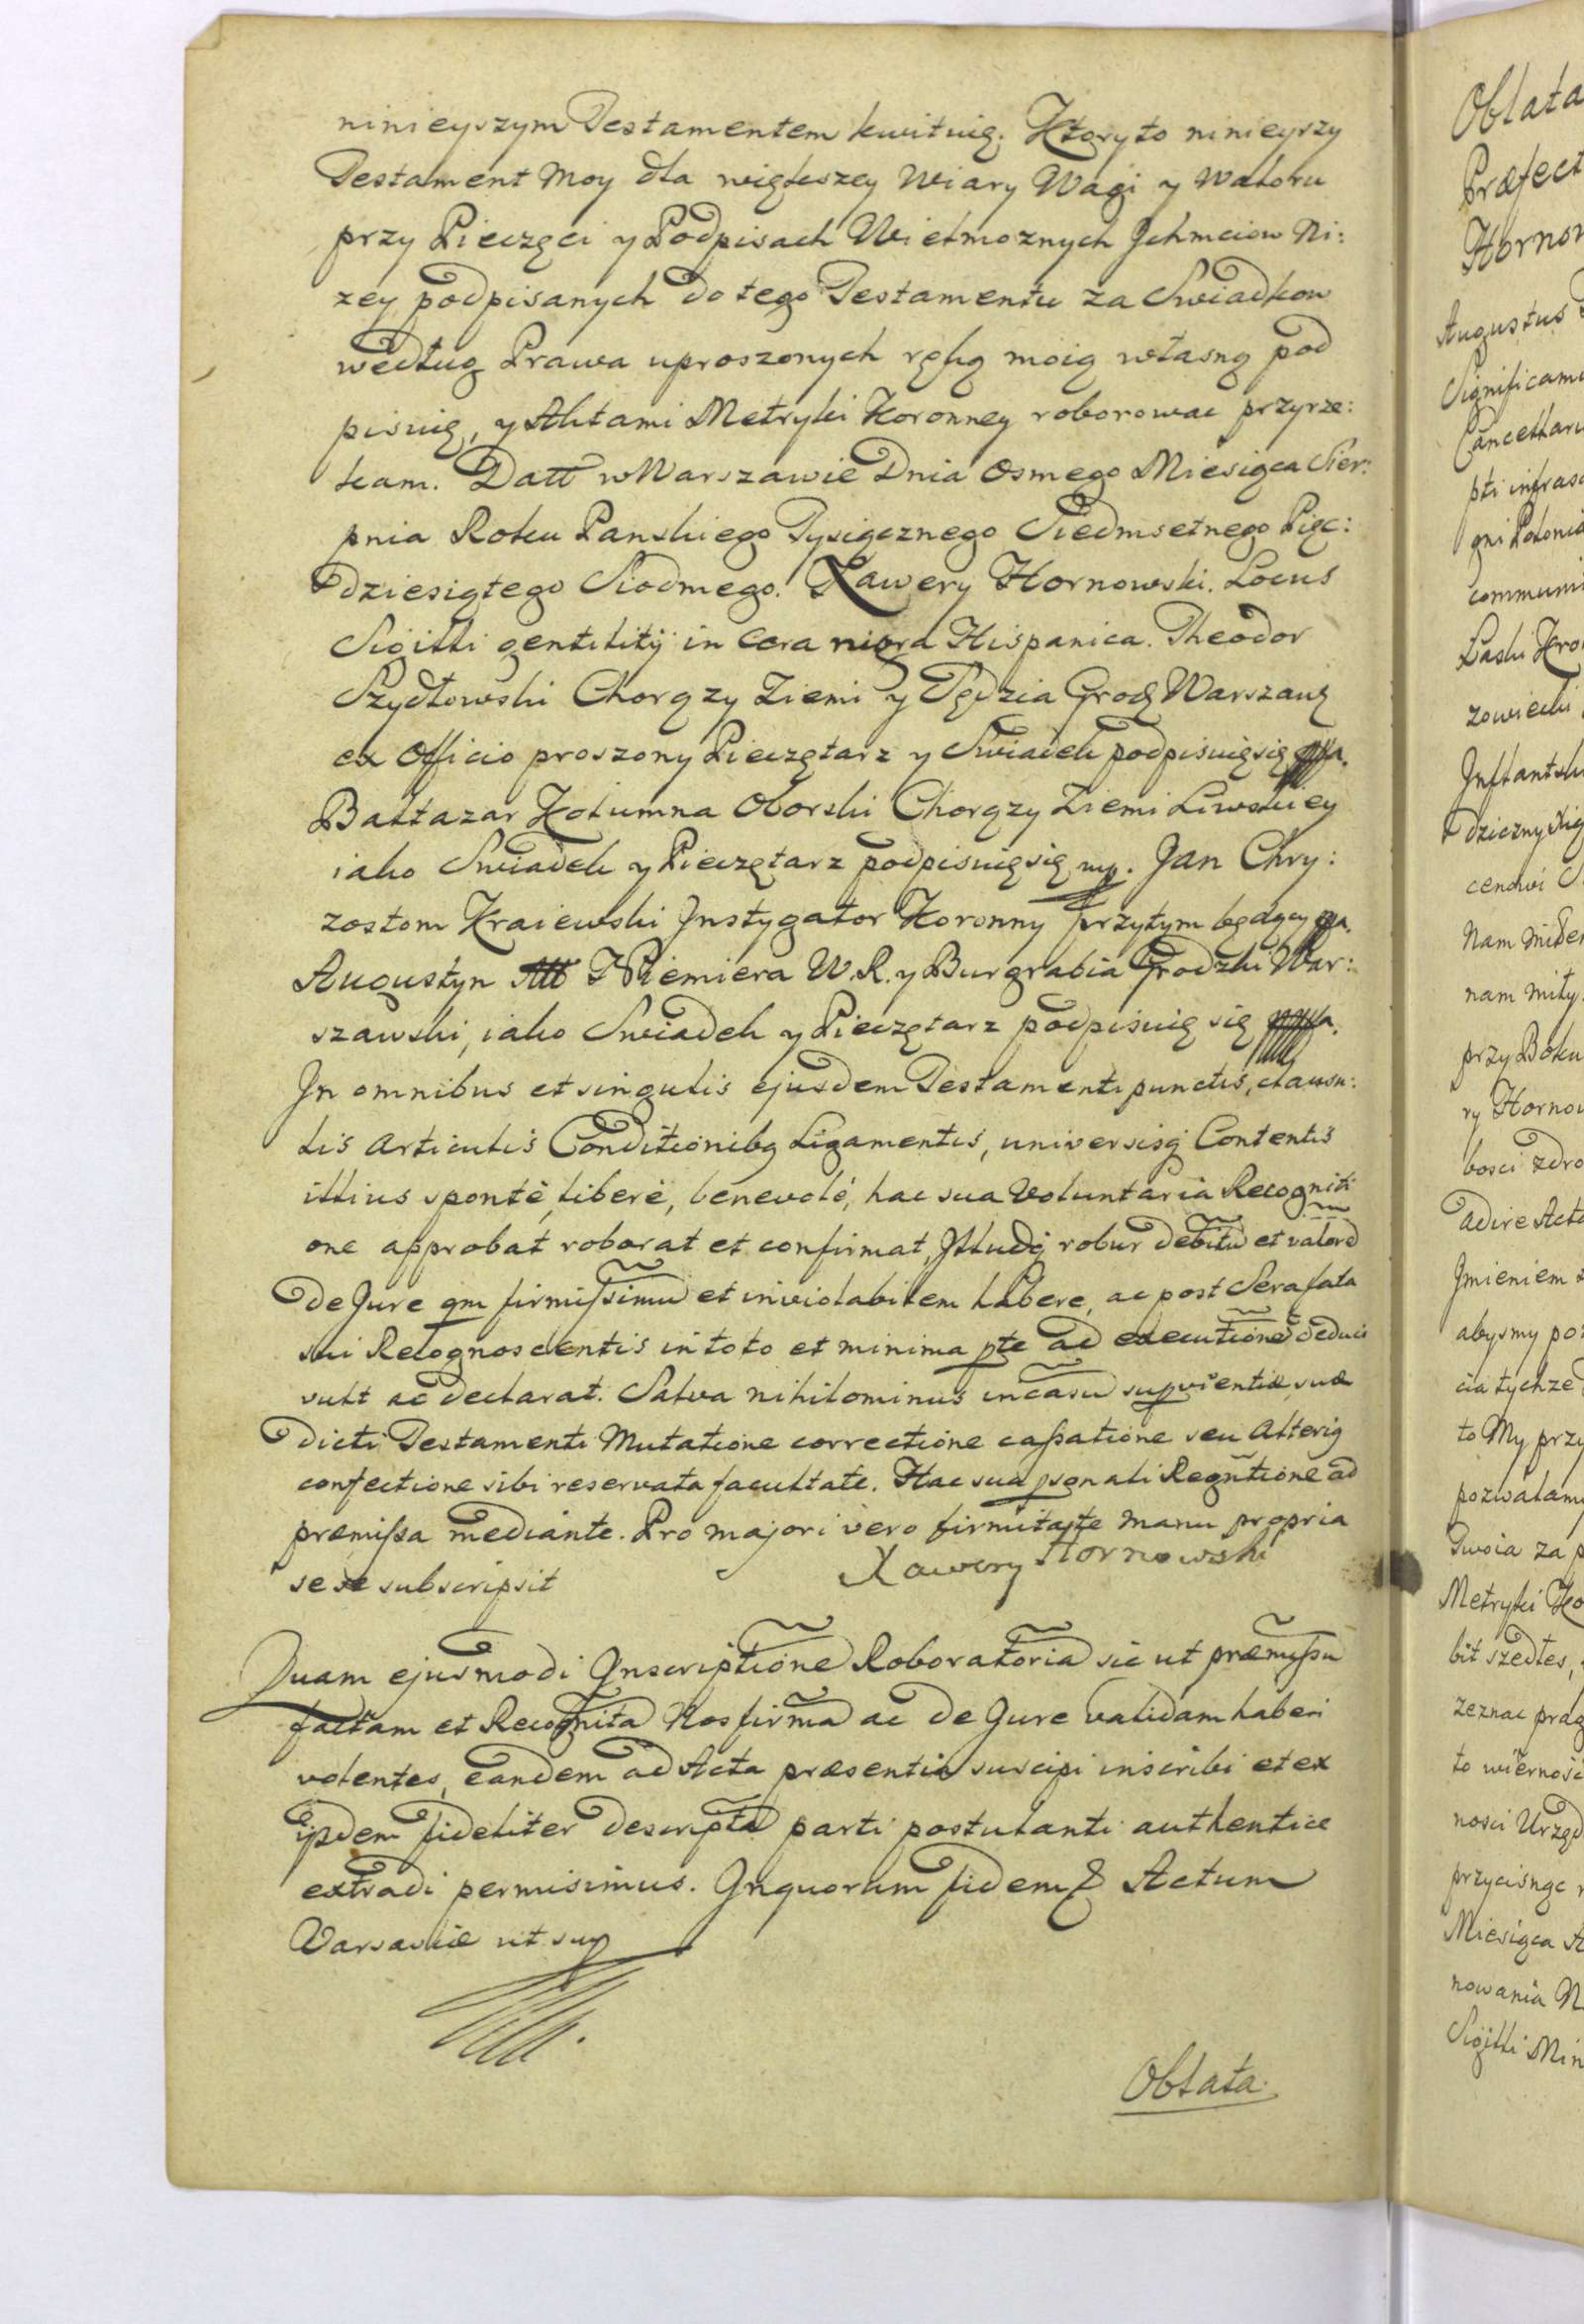 ninieyszym Testamentem kwituię. Ktory to ninieyszy
Testament moy dla większey Wiary Wagi y Waloru
przy Pieczęci y Podpisach Wielmoznych Jchmciow Ni:
zey podpisanych do tego Testamentu za Swiadkow
według Prawa uproszonych ręką moią własną pod
pisuię, y Aktami Metryki Koronney roborowac przyrze:
kam. Datt w Warszawie Dnia Osmego Miesiąca Sier:
pnia Roku Panskiego Tysiącznego Siedmsetnego Pięc:
dziesiątego Siodmego. Xawery Hornowski. Locus
Sigilli gentilitÿ in Cera nigra Hispanica. Theodor
Szydłowski Chorązy Ziemi y Sędzia Grodz Warszaws
ex Officio proszony Pieczętarz y Swiadek podpisuię się
Baltazar Kolumna Oborski Chorązy Ziemi Liwskiey
iako Swiadek y Pieczętarz podpisuię się mp. Jan Chry:
zostom Kraiewski Jnstygator Koronny przytym będący
Augustyn Niemiera W. R. y Burgrabia Grodzki War:
szawski, iako Swiadek y Pieczętarz podpisuię się
Jn omnibus et singulis ejusdem Testamenti punctis, clausu:
lis Articulis Conditionibg Ligamentis, universisq Contentis
illius spontè, liberè, benevolé, hac sua Voluntaria Recogniti
one approbat roborat et confirmat, Jlludq robur debitũ et valorẽ
de Jure qm firmissimũ et inviolabilem habere, ac post Sera fata
sui Recognoscentis in toto et minima pte ad executionẽ deduci
vult ac declarat. Salva nihilominus in casu supvientiæ suæ
dicti Testamenti Mutatione correctione cassatione seu Alterig
confectione sibi reservata facultate. Hac sua psonali Regñtione ad
præmissa mediante. Pro majori vero firmitate manu propria
se se subscripsit Xawery Hornowski
Quam ejusmodi Jnscriptionẽ Roboratoriã sic ut præmissũ
factam et Recognitã Nos firmã ac de Jure validam haberi
volentes, eandem ad Acta præsentia suscipi inscribi et ex
ijsdem fideliter descriptã parti postulanti authentice
extradi permisimus. Jn quorum fidem & Actum
Varsaviæ ut sup
Oblata.
Oblata
Præfect
Hornow
Augustus
Significam
Cancellari
pti infras
gni Poloniæ
communi
Łaski
zowiecki
Jnflantsk
dziczny Xią
cenowi
Nam
nam miły.
przy Boku
ry Hornow
bosci zdro
adire Acta
Jmieniem
abysmy po
cia tychze
to My przy
pozwalamy
Twoia za
Metryki Ko
bit szedłes,
zeznac prag
to wiernosc
nosci Urzęd
przycisnąc
Miesiąca
nowania N
Sigilli Min